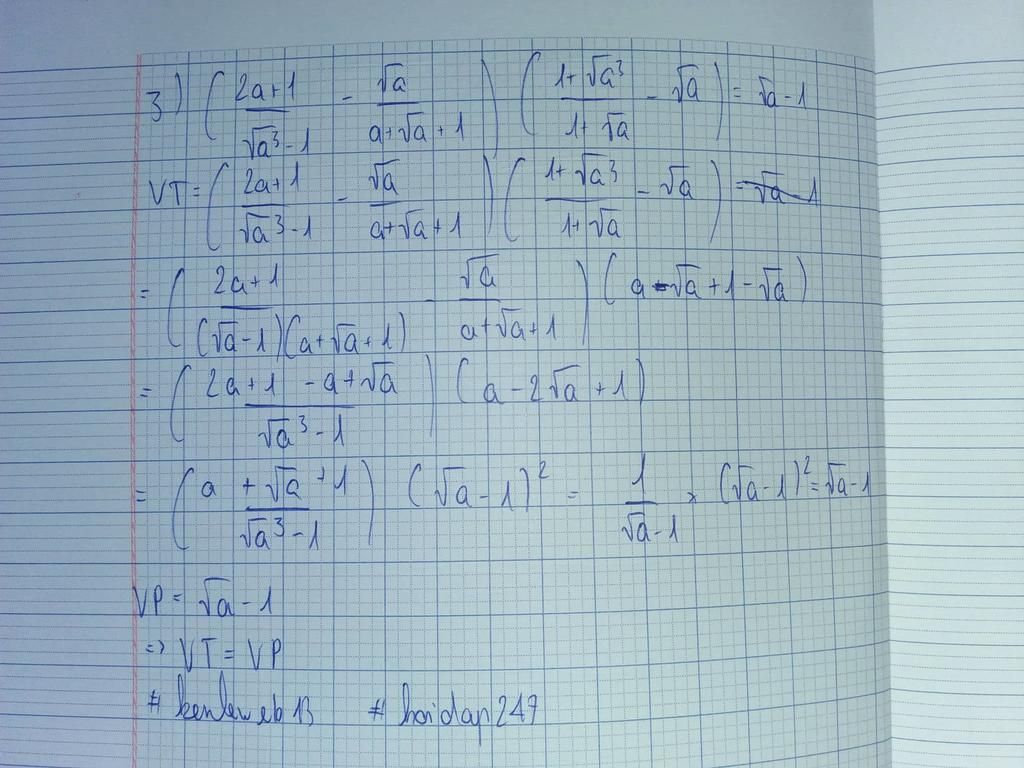 3) ( (2a+1)/(√a³-1) - √a/(a+√a+1) ) ( (1+√a³)/(1+√a) - √a ) = √a-1
VT = ( (2a+1)/(√a³-1) - √a/(a+√a+1) ) ( (1+√a³)/(1+√a) - √a ) = √a-1
= ( (2a+1)/((√a-1)(a+√a+1)) - √a/(a+√a+1) ) ( a-√a+1-√a )
= ( (2a+1-a+√a)/(√a³-1) ) ( a-2√a+1 )
= ( (a+√a+1)/(√a³-1) ) (√a-1)² = 1/(√a-1) × (√a-1)² = √a-1
VP = √a-1
=> VT = VP
# hoidap247